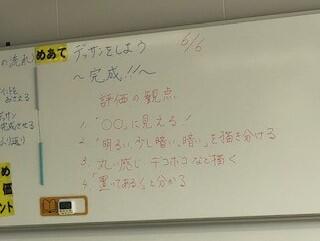 の流れ
めあて デッサンをしよう
6/6
〜完成!!〜
評価の観点
1.「○○」に見える!
2.「明るい、少し暗い、暗い」を描き分ける
3. 丸い感じ・デコボコなど描く
4.「置いてある!」と分かる
おさえる
完成させる
ふり返り
め
価
ント